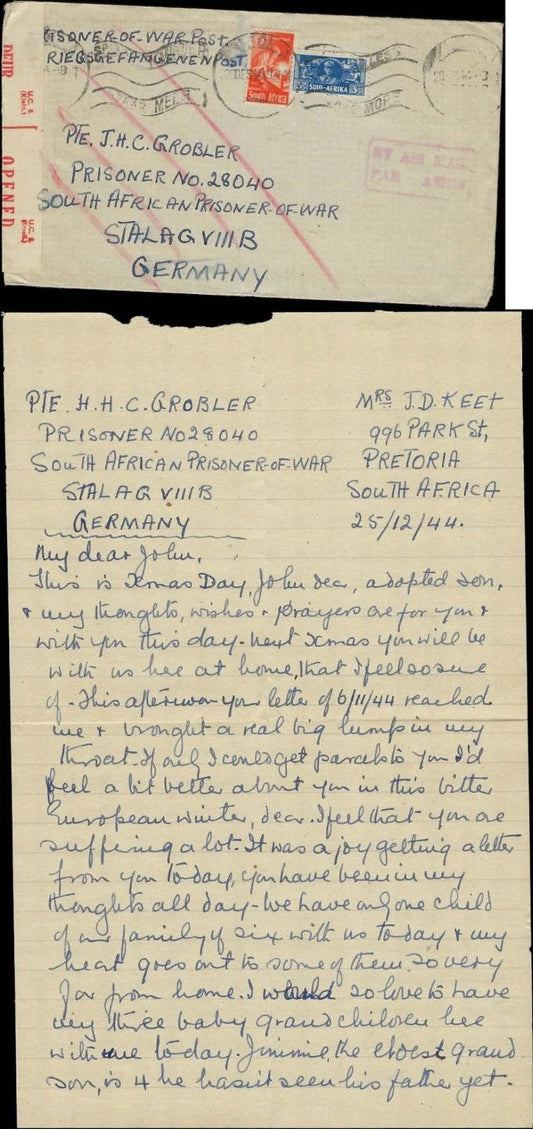 PRISONER-OF-WAR POST.
KRIEGSGEFANGENENPOST
South Africa
SUID-AFRIKA
MAKS MEER
DEUR
U.C. 8
OPENED
U.C. 8
BY AIR MAIL
PAR AVION
PTE. J.H.C. GROBLER
PRISONER NO. 28040
SOUTH AFRICAN PRISONER-OF-WAR
STALAG VIIIB
GERMANY
PTE. H.H.C. GROBLER
PRISONER NO 28040
SOUTH AFRICAN PRISONER-OF-WAR
STALAG VIIIB
GERMANY
MRS J.D. KEET
996 PARK St,
PRETORIA
SOUTH AFRICA
25/12/44.
My dear John,
This is Xmas Day, John dear, adopted son,
& my thoughts, wishes & prayers are for you &
with you this day - next Xmas you will be
with us here at home, that I feel so sure
of - This afternoon your letter of 6/11/44 reached
me & brought a real big lump in my
throat. If only I could get parcels to you I'd
feel a bit better about you in this bitter
European winter, dear. I feel that you are
suffering a lot. It was a joy getting a letter
from you to-day, you have been in my
thoughts all day - We have only one child
of our family of six with us to-day & my
heart goes out to some of them so very
far from home. I would so love to have
my three baby grandchildren here
with me to-day. Jimmie, the eldest grand
son, is 4 he hasn't seen his father yet.